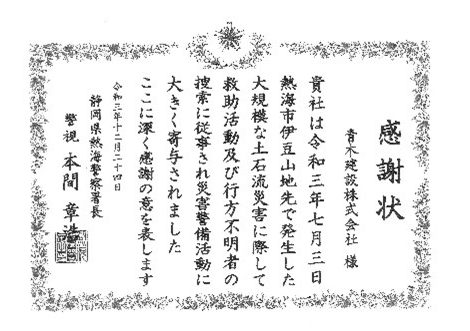 感謝状
青木建設株式会社 様
貴社は令和三年七月三日
熱海市伊豆山地先で発生した
大規模な土石流災害に際して
救助活動及び行方不明者の
捜索に従事され災害警備活動に
大きく寄与されました
ここに深く感謝の意を表します
令和三年十二月二十四日
静岡県熱海警察署長
警視 本間 章浩